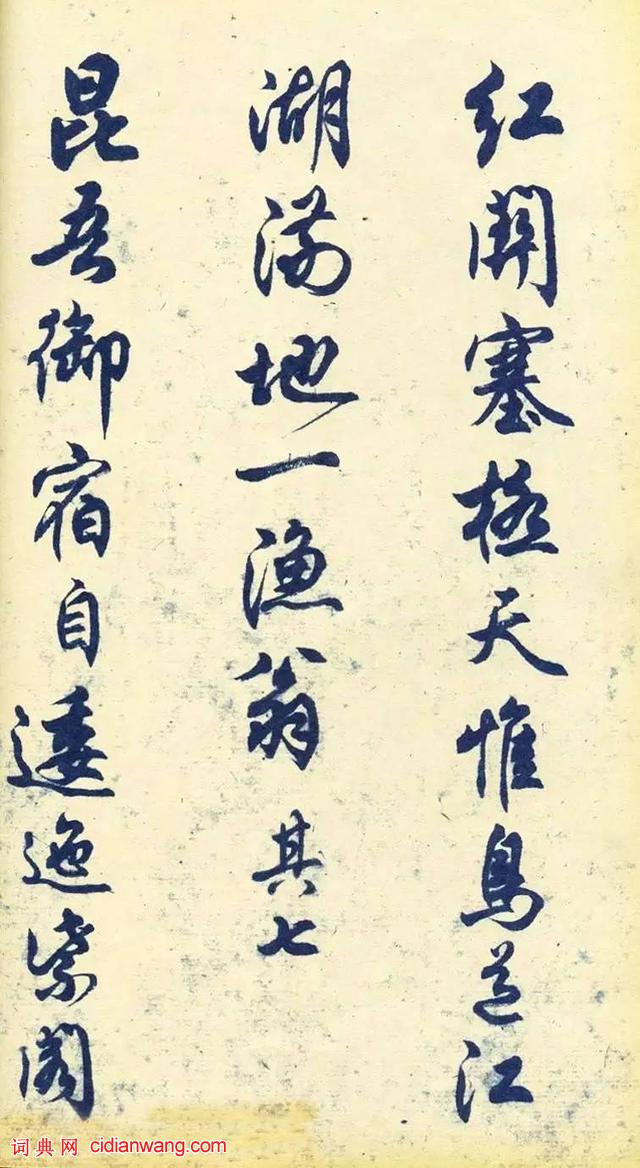 红關塞極天惟鳥道江
湖满地一漁翁其七
昆吾御宿自逶迤紫閣
词典网 cidianwang.com